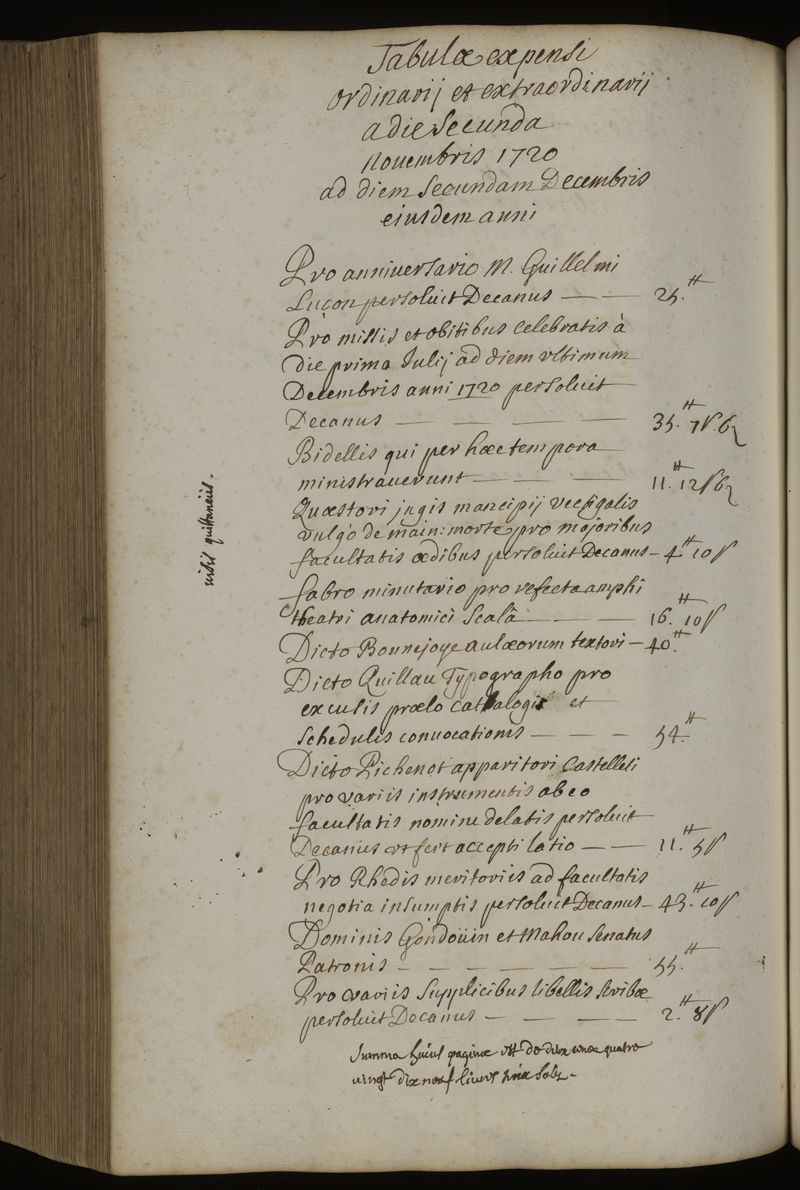 Tabulæ expensi
ordinarij et extraordinarij
a die secunda
Nouembris 1720
ad diem secundam Decembris
eiusdem anni
Pro anniuersario M. Guillelmi
Luçon persoluit Decanus — — 25.tt
Pro missis et obitibus celebratis à
die prima Julij ad diem vltimum
Decembris anni 1720 persoluit
Decanus — — — — 35.tt 7s. 6d
Bidellis qui per hæc tempora
ministrauerunt — — — 11.tt 12s 6d
Quæstori jugis mancipij vectigalis
vulgò de main: morte, pro majoribus
facultatis ædibus persoluit Decanus — 4.tt 10s
fabro minutario pro refecta amphi
theatri anatomici Scalâ — — — 16.tt 10s
Dicto Bonnejoye aulæorum textori — 40.tt
Dicto Quillau Typographo pro
excusis prælo catalogis et
schedulis conuocationis — — — 54.tt
Dicto Pichenot apparitori Castelleti
pro variis instrumentis ab eo
facultatis nomine delatis persoluit
Decanus vt fert accepti latio — — 11.tt 5s
Pro Rhedis meritoriis ad facultatis
negotia insumptis persoluit Decanus — 43.tt 10s
Dominis Gondoüin et Mahou Senatus
Patronis — — — — — — 55.tt
Pro variis Supplicibus libellis scribæ
persoluit Decanus — — — — 2.tt 8s
Summa huius paginæ est de deux cents quatre
vingt dix neuf livres trois sols –
nihil quittanciis.